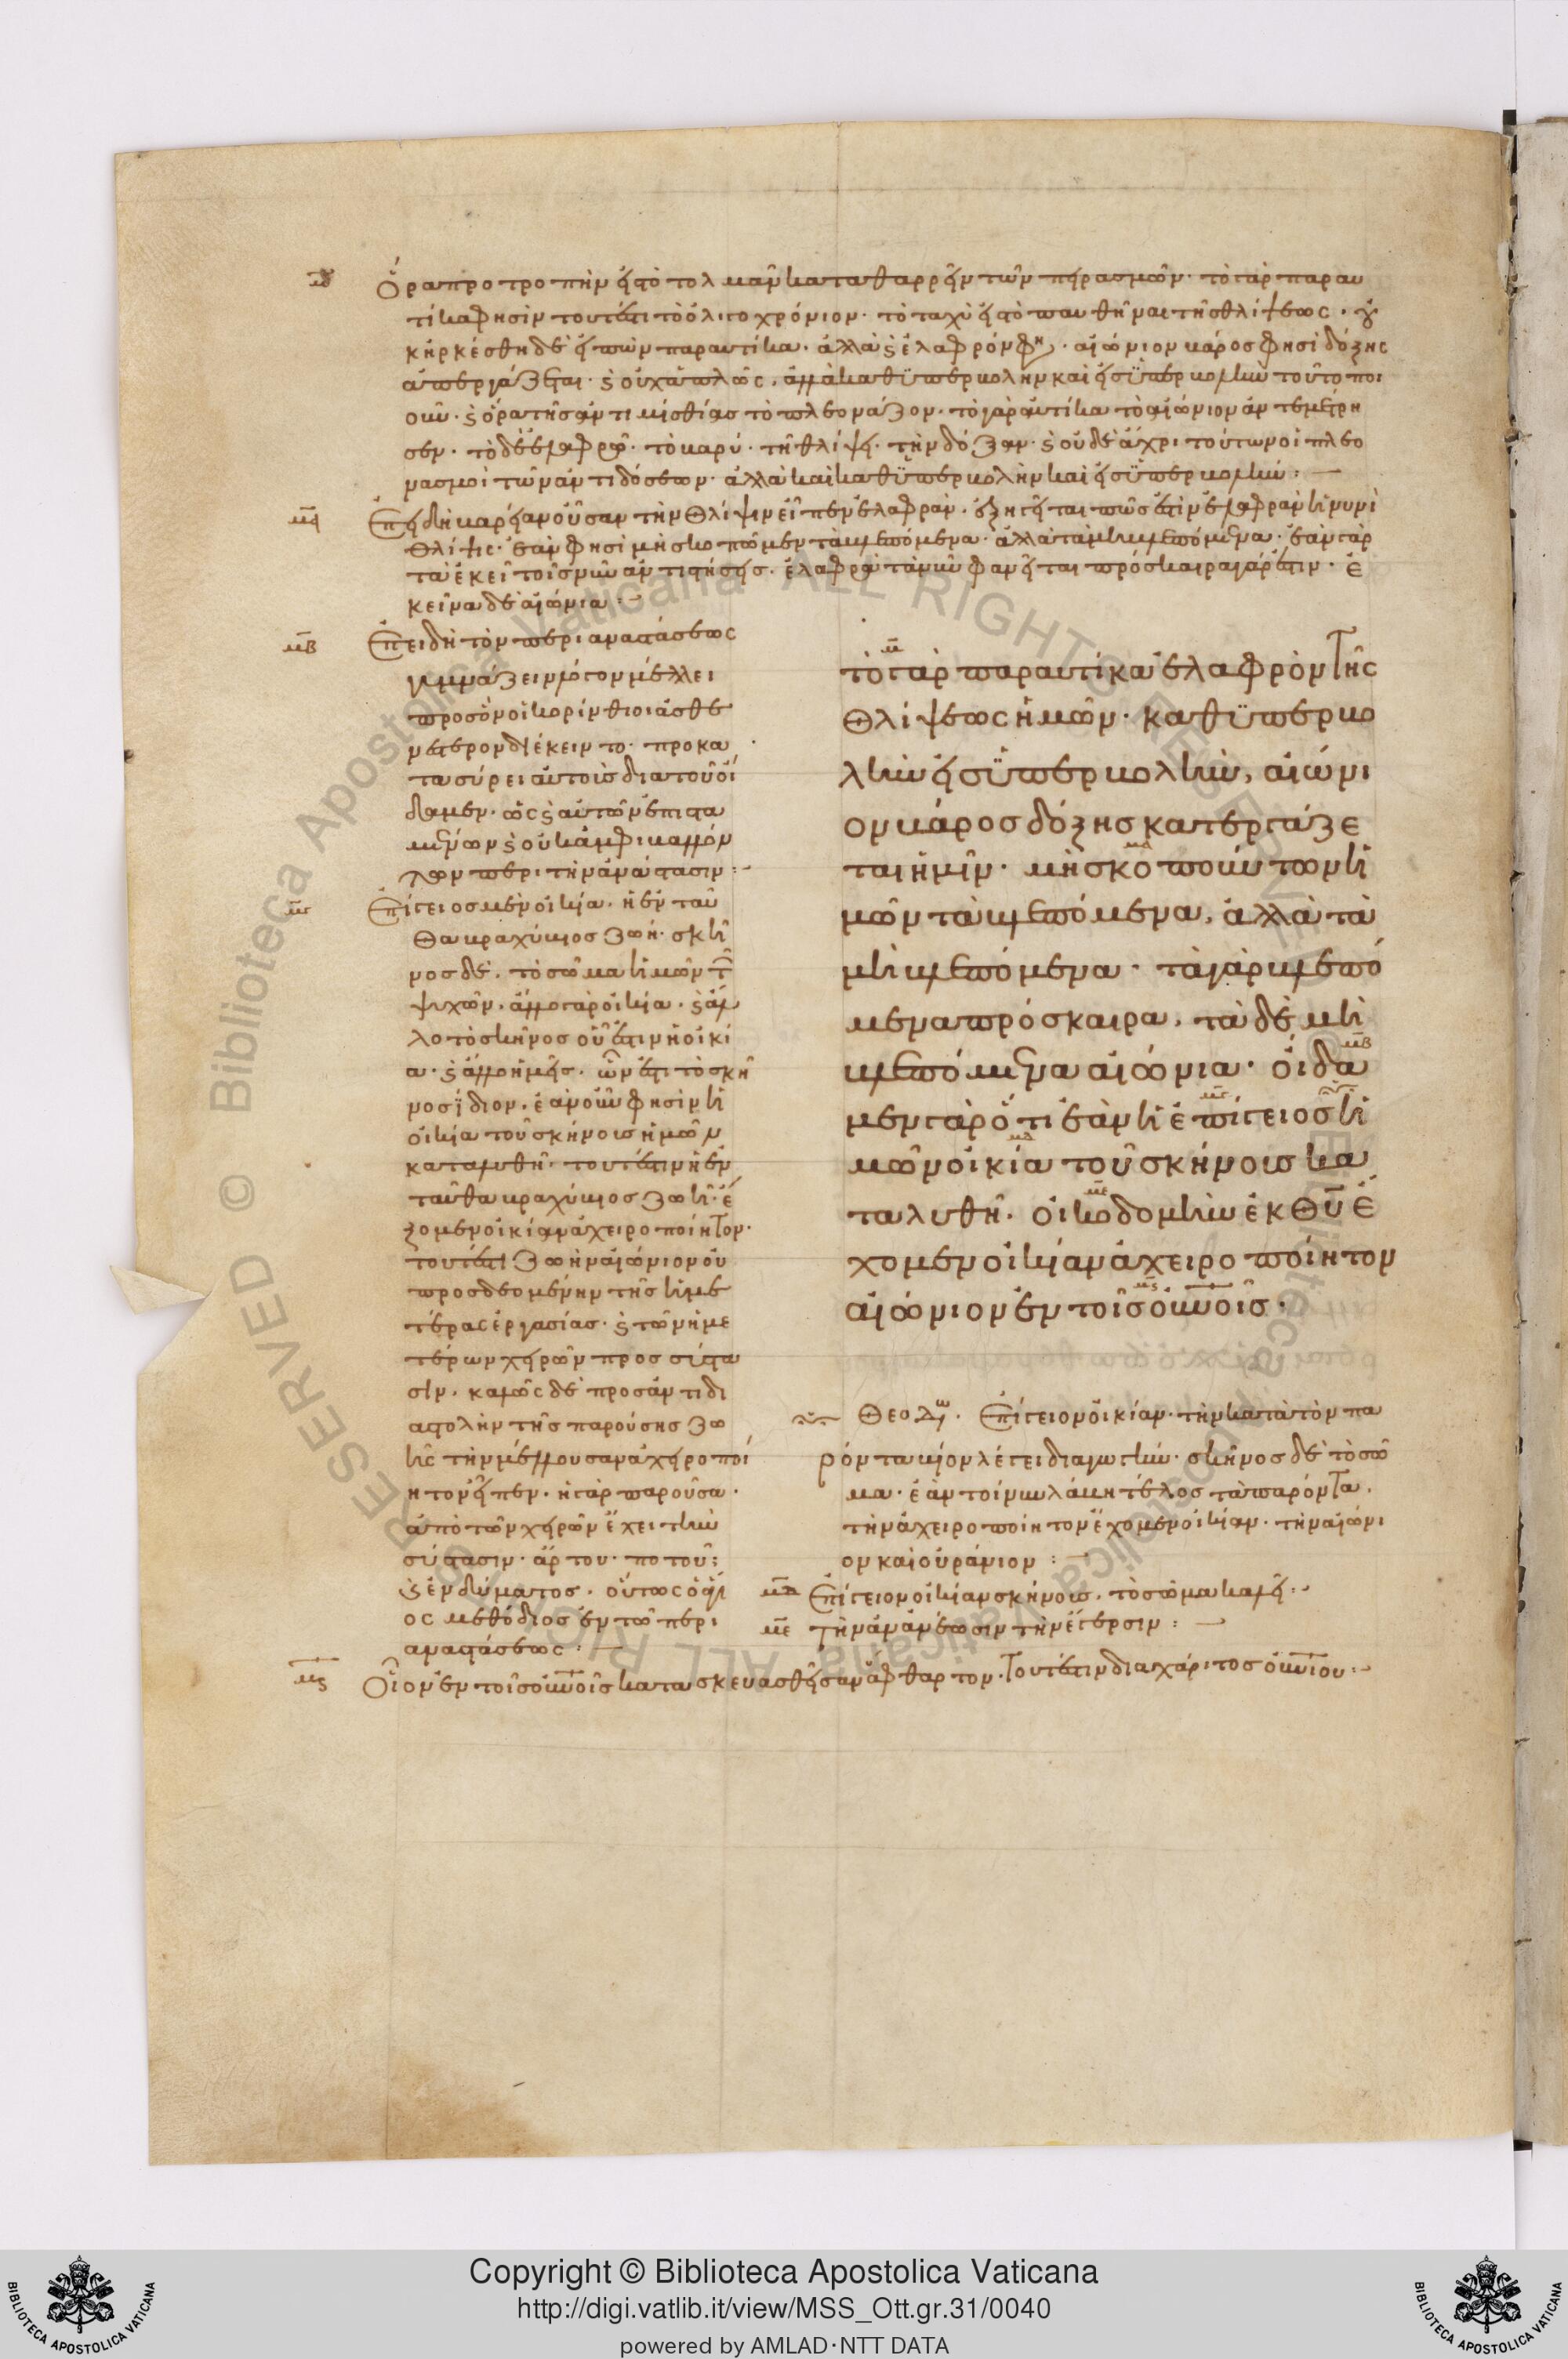 μ Ὅρα προτροπὴν εἰς τὸ τολμᾶν καταθαρρεῖν τῶν πειρασμῶν· τὸ γὰρ παραυ
τίκα φησὶν τουτέστι τὸ ὀλιγοχρόνιον· τὸ ταχὺ εἰς τὸ παυθῆναι τῆς θλίψεως·
κἠρκέσθη δὲ εἰπὼν παραυτίκα· ἀλλὰ καὶ ἐλαφρόν φη· αἰώνιον βάρος φησὶ δόξης
ἀπεργάζεται· καὶ οὐχ ἁπλῶς, ἀλλὰ καθ ὑπερβολὴν καὶ εἰς ὑπερβολὴν τοῦτο ποι
οῦν· καὶ ὅρα τῆς ἀντιμισθίας τὸ πλεονάζον· τὸ γὰρ αὐτίκα τὸ αἰώνιον ἀντεμέτρη
σεν· τὸ δὲ ἐλαφρῶ· τὸ βαρύ· τῆ θλίψει· τὴν δόξαν· καὶ οὐδὲ ἄχρι τούτων οἱ πλεο
νασμοὶ τῶν ἀντιδόσεων· ἀλλὰ καὶ καθ ὑπερβολὴν καὶ εἰς ὑπερβολήν :
μα Ἐπειδὴ βαρεῖαν οὖσαν τὴν θλίψιν εἶπεν ἐλαφράν· ἐζητεῖται πῶς ἐστὶν ἐλαφρὰ ἡ νυνὶ
θλίψις· ἐὰν φησὶ μὴ σκοπῶμεν τὰ βλεπόμενα· ἀλλὰ τὰ μὴ βλεπόμενα· ἐὰν γὰρ
τὰ ἐκεῖ τοῖς νῦν ἀντιστήσῃς· ἐλαφρὰ τὰ νῦν φανεῖται πρόσκαιρα γάρ ἐστιν· ἐ
κεῖνα δὲ αἰώνια :
μβ Ἐπειδὴ τὸν περι αναστάσεως
γυμνάζειν λόγον μέλλει
πρὸς ὃν οἱ κορίνθιοι ἀσθε
νέστερον διέκειντο· προκα
τασύρει αὐτοὺς διὰ τοῦ οἴ
δαμεν· ὡς καὶ αὐτῶν ἐπιστα
μένων καὶ οὐκ ἀμφιβαλλόν
των περι τὴν ἀνάστασιν :
μγ Ἐπίγειος μὲν οἰκία· ἡ ἐνταῦ
θα βραχύβιος ζωή· σκῆ
νος δὲ· τὸ σῶμα ἡμῶν τῶν
ψυχῶν· ἄλλο γὰρ οἰκία· καὶ ἄλ
λο τὸ σκῆνος οὗ ἐστιν ἡ οἰκί
α· καὶ ἄλλο ἡμεῖς· ὧν ἐστι τὸ σκῆ
νος ἴδιον· ἐὰν οὖν φησὶν ἡ
οἰκία τοῦ σκήνους ἡμῶν
καταλυθῆ· τουτέστιν ἡ ἐν
ταῦθα βραχύβιος ζωή· ἕ
ξομεν οἰκίαν ἀχειροποίητον·
τουτέστι ζωὴν αἰώνιον οὐ
προσδεομένην τῆς ἡμε
τέρας ἐργασίας· καὶ τῶν ἡμε
τέρων χειρῶν προς σύστα
σιν· καλῶς δὲ προς ἀντιδι
αστολὴν τῆς παρούσης ζω
ῆς τὴν μέλλουσαν ἀχειροποί
ητον εἶπεν· ἡ γὰρ παροῦσα·
ἀπὸ τῶν χειρῶν ἔχει τὴν
σύστασιν· ἄρτου· ποτοῦ·
καὶ ἐνδύματος· οὕτως ὁ ἅγι
ος μεθόδιος ἐν τῶ περι
αναστάσεως :
τὸ γὰρ παραυτίκα ἐλαφρὸν τῆς
θλίψεως ἡμῶν· καθ ὑπερβο
λὴν εἰς ὑπερβολὴν, αἰώνι
ον βάρος δόξης κατεργάζε
ται ἡμῖν· μὴ σκοπούντων ἡ
μῶν τὰ βλεπόμενα, ἀλλὰ τὰ
μὴ βλεπόμενα· τὰ γὰρ βλεπό
μενα πρόσκαιρα, τὰ δὲ μὴ
βλεπόμενα αἰώνια· οἴδα
μεν γὰρ ὅτι ἐὰν ἡ ἐπίγειος ἡ
μῶν οἰκία τοῦ σκήνους κα
ταλυθῆ· οἰκοδομὴν ἐκ θυ ἔ
χομεν οἰκίαν ἀχειροποίητον
αἰώνιον ἐν τοῖς οὐνοῖς·
Θεοδω· Ἐπίγειον οἰκίαν· τὴν κατὰ τὸν πα
ρόντα βίον λέγει διαγωγήν· σκῆνος δὲ τὸ σῶ
μα· ἐὰν τοίνυν λάβη τέλος τὰ παρόντα,
τὴν ἀχειροποίητον ἔχομεν οἰκίαν· τὴν αἰώνι
ον καὶ οὐράνιον :
μδ Ἐπίγειον οἰκίαν σκήνους, τὸ σῶμα καλεῖ :
με Τὴν ἀνανέωσιν τὴν ἔγερσιν :
μς Οἷον ἐν τοῖς οὐνοῖς κατασκευασθεῖσαν ἄφθαρτον· τουτέστιν δια χάριτος οὐνίου :
Copyright © Biblioteca Apostolica Vaticana
http://digi.vatlib.it/view/MSS_Ott.gr.31/0040
powered by AMLAD·NTT DATA
BIBLIOTECA APOSTOLICA VATICANA
BIBLIOTECA APOSTOLICA VATICANA